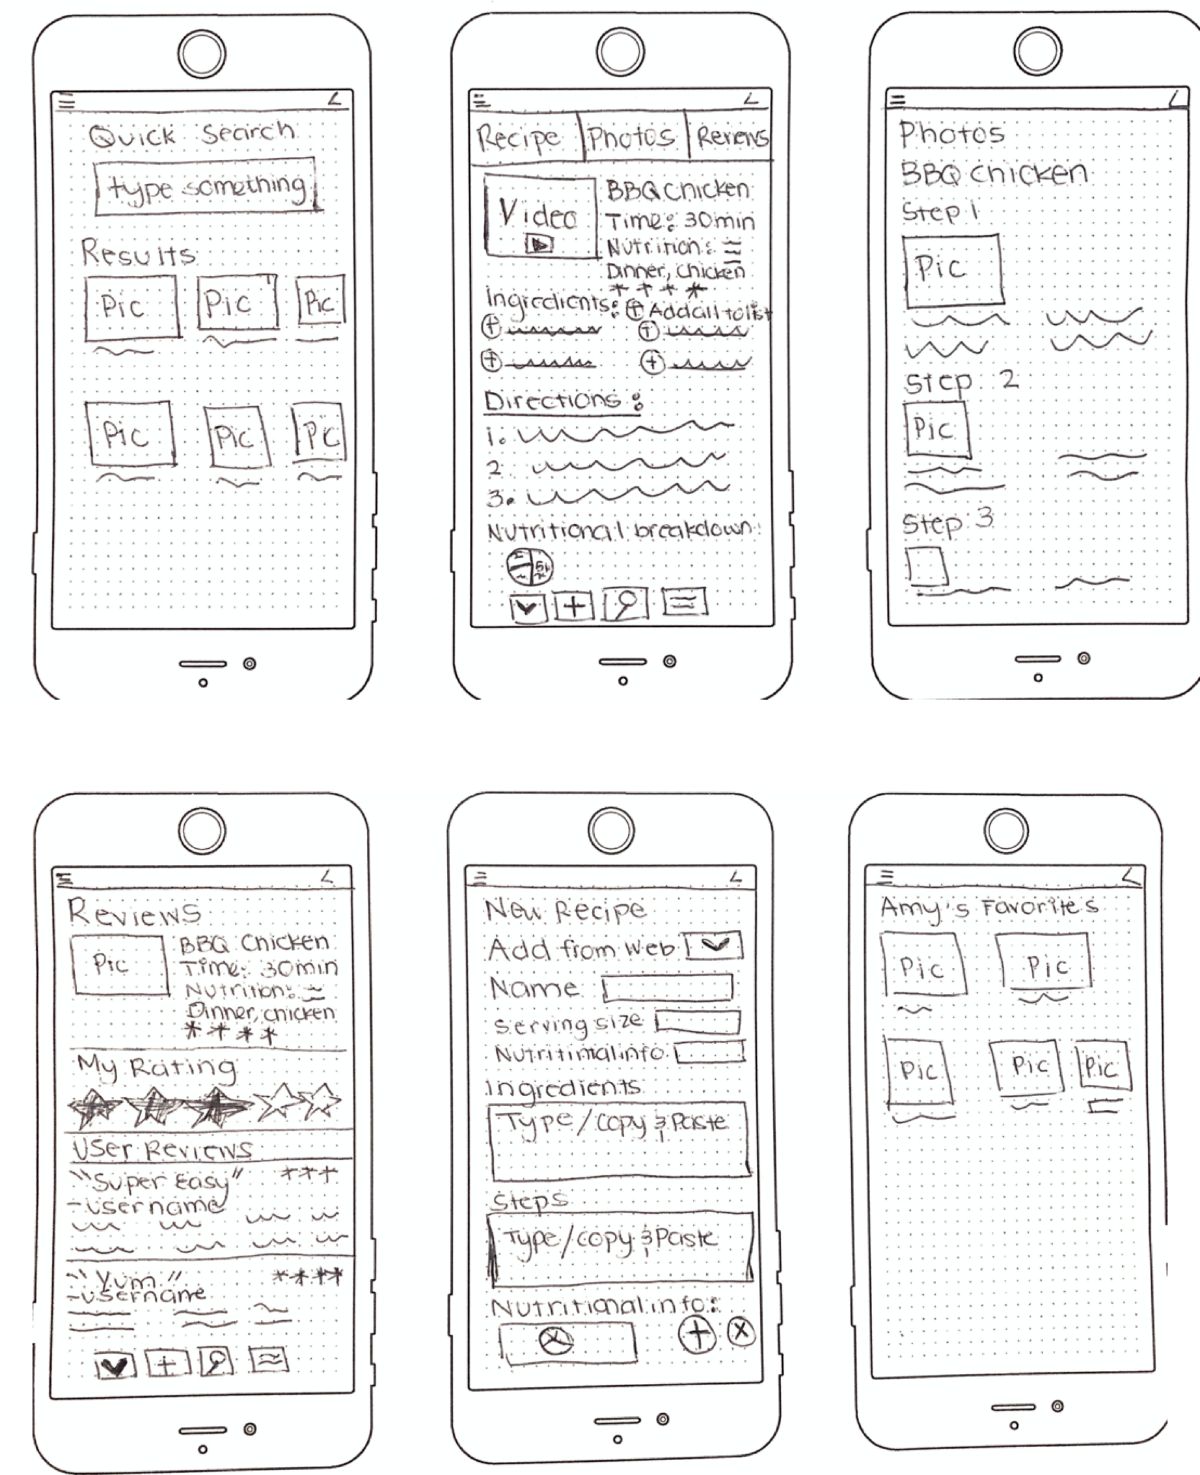 Quick Search
type something
Results
Pic Pic Pic
Pic Pic Pic
Recipe Photos Reviews
Video
BBQ Chicken
Time: 30min
Nutrition:
Dinner, chicken
****
Ingredients: + Add all to list
+ +
+ +
Directions:
1.
2.
3.
Nutritional breakdown:
+
Photos
BBQ Chicken
Step 1
Pic
Step 2
Pic
Step 3
Reviews
Pic
BBQ Chicken
Time: 30min
Nutrition:
Dinner, chicken
****
My Rating
User Reviews
"Super Easy" ***
-username
"Yum" ****
-username
+
New Recipe
Add from Web
Name
Serving size
Nutritional info.
Ingredients
Type/Copy & Paste
Steps
Type/copy & Paste
Nutritional info:
+ x
Amy's Favorites
Pic Pic
Pic Pic Pic